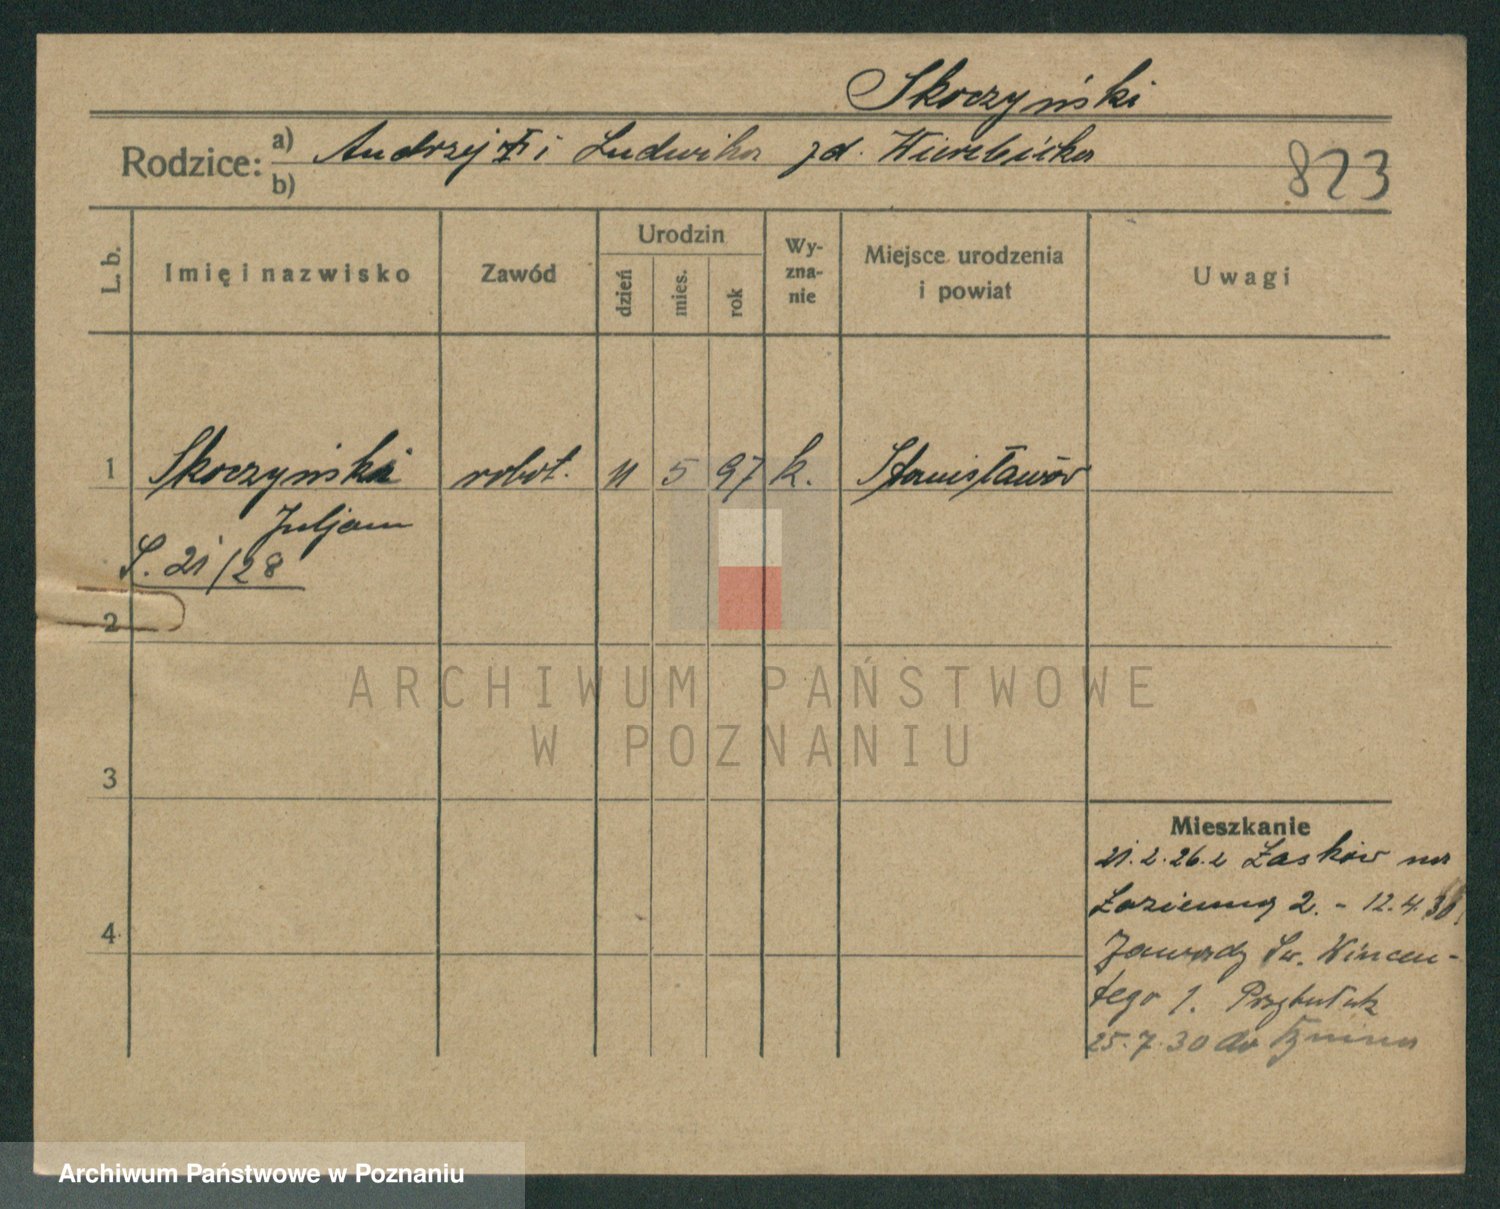 Skoczyński
Rodzice: a) Andrzej i Ludwika zd. Wierzbicka
b)
823
L. b.
Imię i nazwisko
Zawód
Urodzin
dzień
mies.
rok
Wy-
zna-
nie
Miejsce urodzenia
i powiat
Uwagi
1 Skoczyński robot. 11 5 97 k. Stanisławów
Juljan
S. 21/28
2
ARCHIWUM PAŃSTWOWE
W POZNANIU
3
Mieszkanie
21.2.26. z Łasków na
Łazienną 2. - 12.4.30
Zawady Św. Wincen-
tego 1. Przytułek
25.7.30 do
4
Archiwum Państwowe w Poznaniu